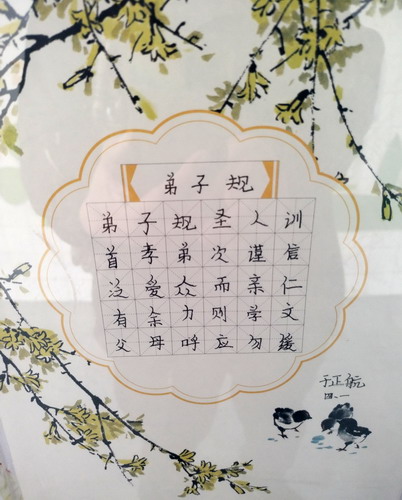 弟子规
弟子规圣人训
首孝弟次谨信
泛爱众而亲仁
有余力则学文
父母呼应勿缓
于正航
四、一